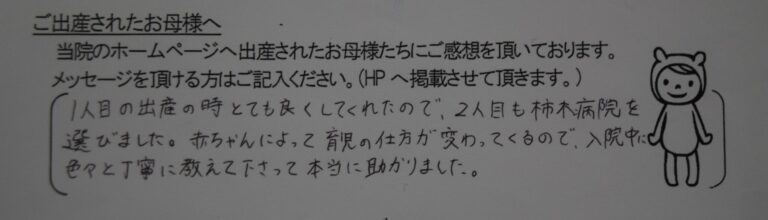 ご出産されたお母様へ
当院のホームページへ出産されたお母様たちにご感想を頂いております。
メッセージを頂ける方はご記入ください。(HPへ掲載させて頂きます。)
1人目の出産の時とても良くしてくれたので、2人目も柿木病院を
選びました。赤ちゃんによって育児の仕方が変わってくるので、入院中に
色々と丁寧に教えて下さって本当に助かりました。